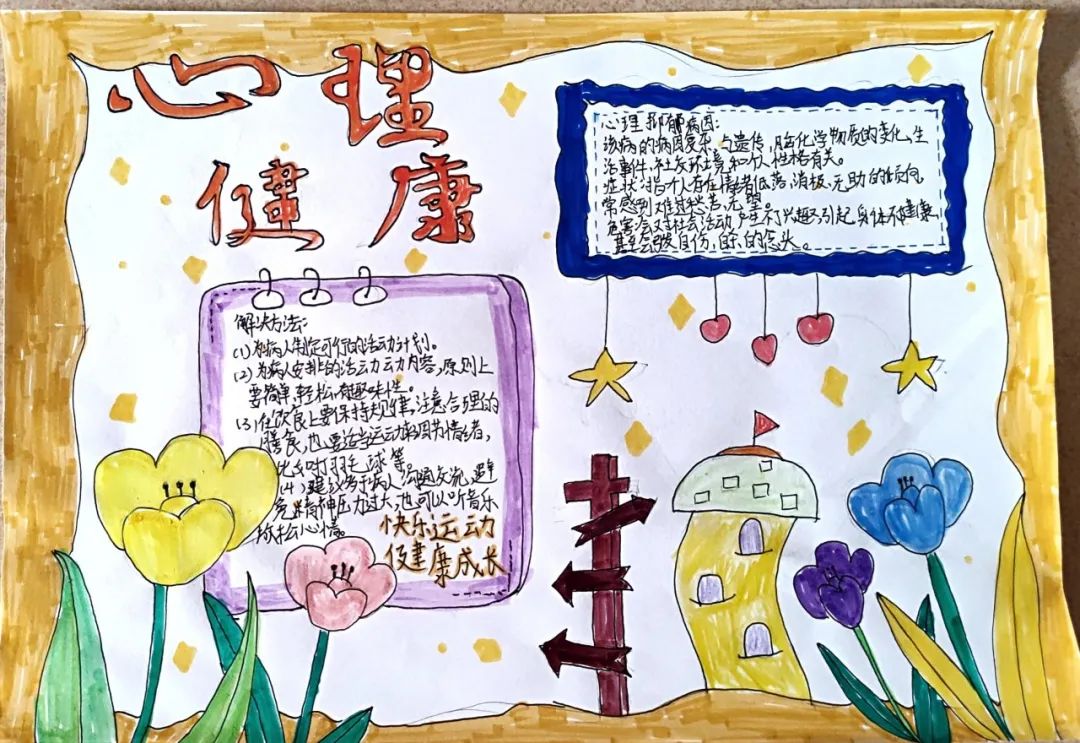 心理
健康
心理抑郁病因:
该病的病因复杂,与遗传,脑化学物质的变化,生
活事件,社交环境和个人性格有关。
症状:指个人存在情绪低落,消极,无助的倾向,
常感到难过,无望。
危害:会对社会活动产生不了兴趣,引起身体不健康,
甚至会自伤,自杀的念头。
解决方法:
(1)为病人制定可行的活动计划。
(2)为病人安排上的活动内容,原则上
要简单,轻松,有趣味性。
(3)在饮食上要保持规律,注意合理的
膳食,也要适当运动来调节情绪,
比如羽毛球等
(4)建议多于病人沟通交流,避
免精神压力过大,也可以听音乐
放松心情。
快乐运动
健康成长